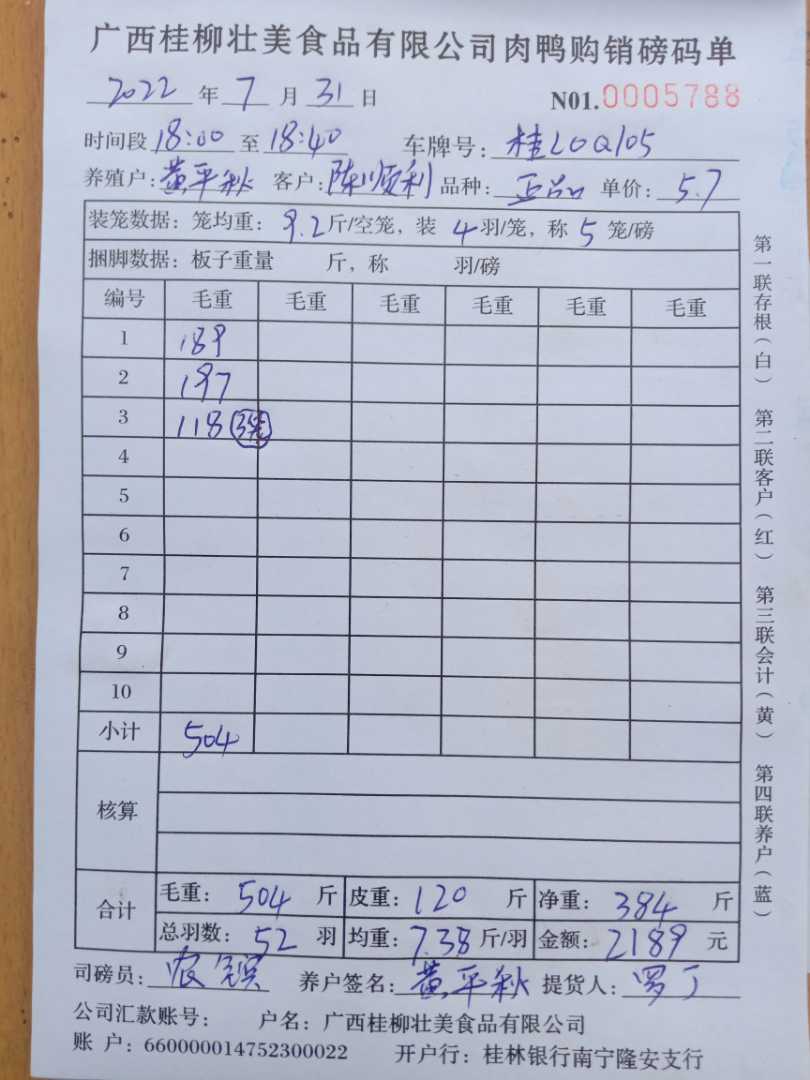 广西桂柳壮美食品有限公司肉鸭购销磅码单
2022 年 7 月 31 日 N01.0005788
时间段 18:00 至 18:40 车牌号: 桂L0Q105
养殖户: 黄平秋 客户: 陈顺利 品种: 正品 单价: 5.7
装笼数据: 笼均重: 9.2 斤/空笼, 装 4 羽/笼, 称 5 笼/磅
捆脚数据: 板子重量 斤, 称 羽/磅
编号 毛重 毛重 毛重 毛重 毛重 毛重
1 189
2 197
3 118 3笼
4
5
6
7
8
9
10
小计 504
核算
合计 毛重: 504 斤 皮重: 120 斤 净重: 384 斤
总羽数: 52 羽 均重: 7.38 斤/羽 金额: 2189 元
司磅员: 农 养户签名: 黄平秋 提货人: 罗丁
公司汇款账号: 户名: 广西桂柳壮美食品有限公司
账 户: 660000014752300022 开户行: 桂林银行南宁隆安支行
第一联存根(白) 第二联客户(红) 第三联会计(黄) 第四联养户(蓝)